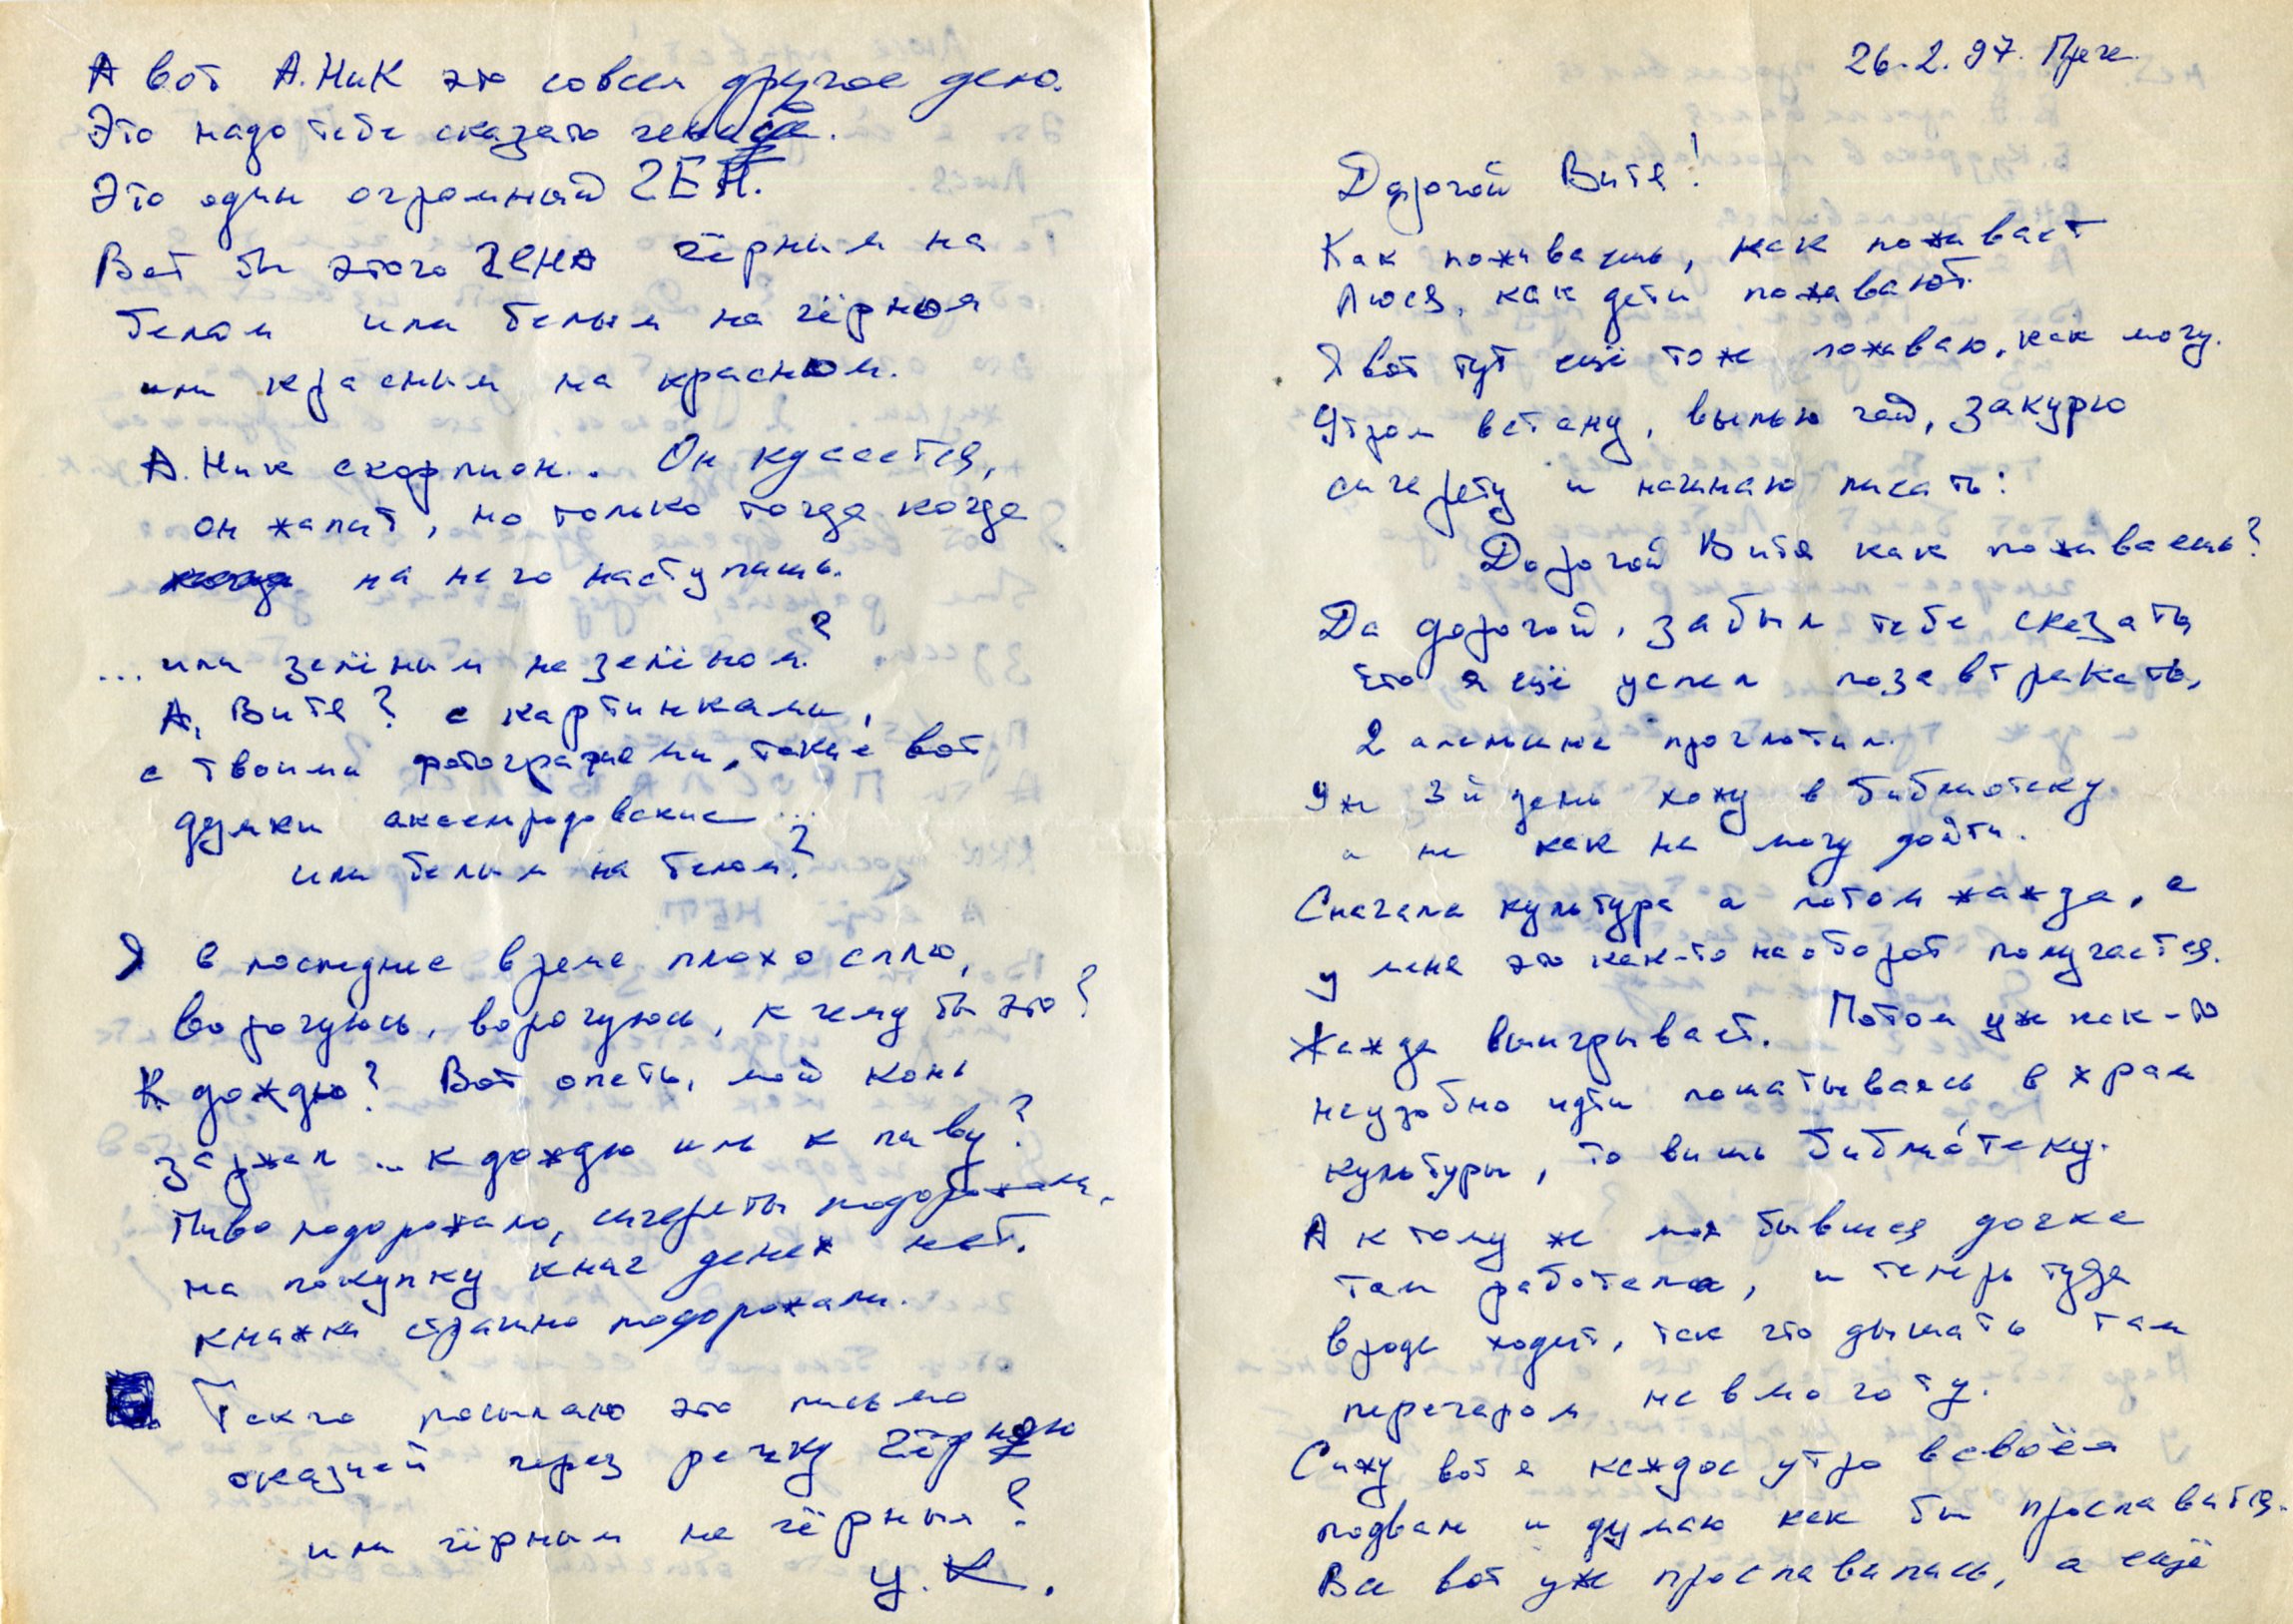 А вот А.НиК это совсем другое дело.
Это надо тебе сказать
Это один огромный ГЕН.
Вот бы этого ГЕНА чёрным на
белом или белым на чёрном
или красным на красном.
А. Ник скорпион.. Он кусается,
он жалит, но только тогда когда
на него наступишь.
... или зелёным на зелёном?
А, Витя? с картинками,
с твоими фотографиями, такие вот
думки аксельродовские ...
или белым на белом?
Я в последнее время плохо сплю,
ворочуюсь, ворочуюсь, к чему бы это?
К дождю? Вот опять, мой конь
заржал ... к дождю иль к пиву?
Пиво подорожало, сигареты подорожали,
на покупку книг денех нет.
книжки страшно подорожали.
Такчо посылаю это письмо
оказией через речку Чёрную
или чёрным на чёрным?
У.К.
26.2.97. Прага.
Дорогой Витя!
Как поживаешь, как поживает
Люся, как дети поживают.
Я вот тут ещё тоже поживаю, как могу.
Утром встану, выпью чай, закурю
сигарету и начинаю писать:
Дорогой Витя как поживаешь?
Да дорогой, забыл тебе сказать
что я ещё успел позавтракать,
2 апельсина проглотил.
Уже 3й день хожу в библиотеку
и не как не могу дойти.
Сначала культура а потом жажда, а
у меня это как-то наоборот получается.
Жажда выигрывает. Потом уж как-то
неудобно идти пошатываясь в храм
культуры, то вишь библио́теку.
А к тому же моя бывшая дочка
там работала, и теперь туда
вроде ходит, так что дышать там
перегаром невмоготу.
Сижу вот я каждое утро в своём
подвале и думаю как бы прославится.
Все вот уже прославились, а ещё